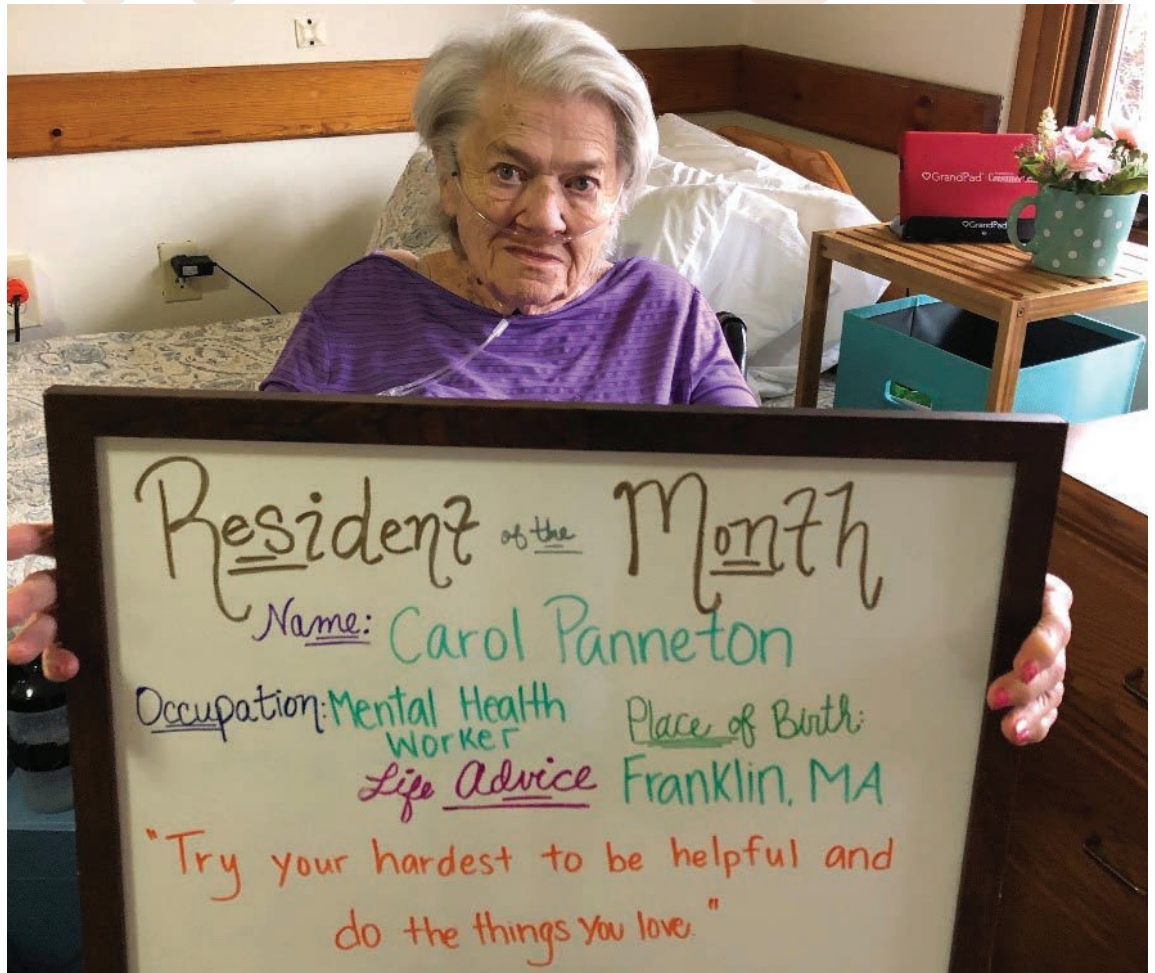 ♡GrandPad
♡GrandPad
Resident of the Month
Name: Carol Panneton
Occupation: Mental Health
Worker
Place of Birth:
Franklin, MA
Life Advice
"Try your hardest to be helpful and
do the things you love."